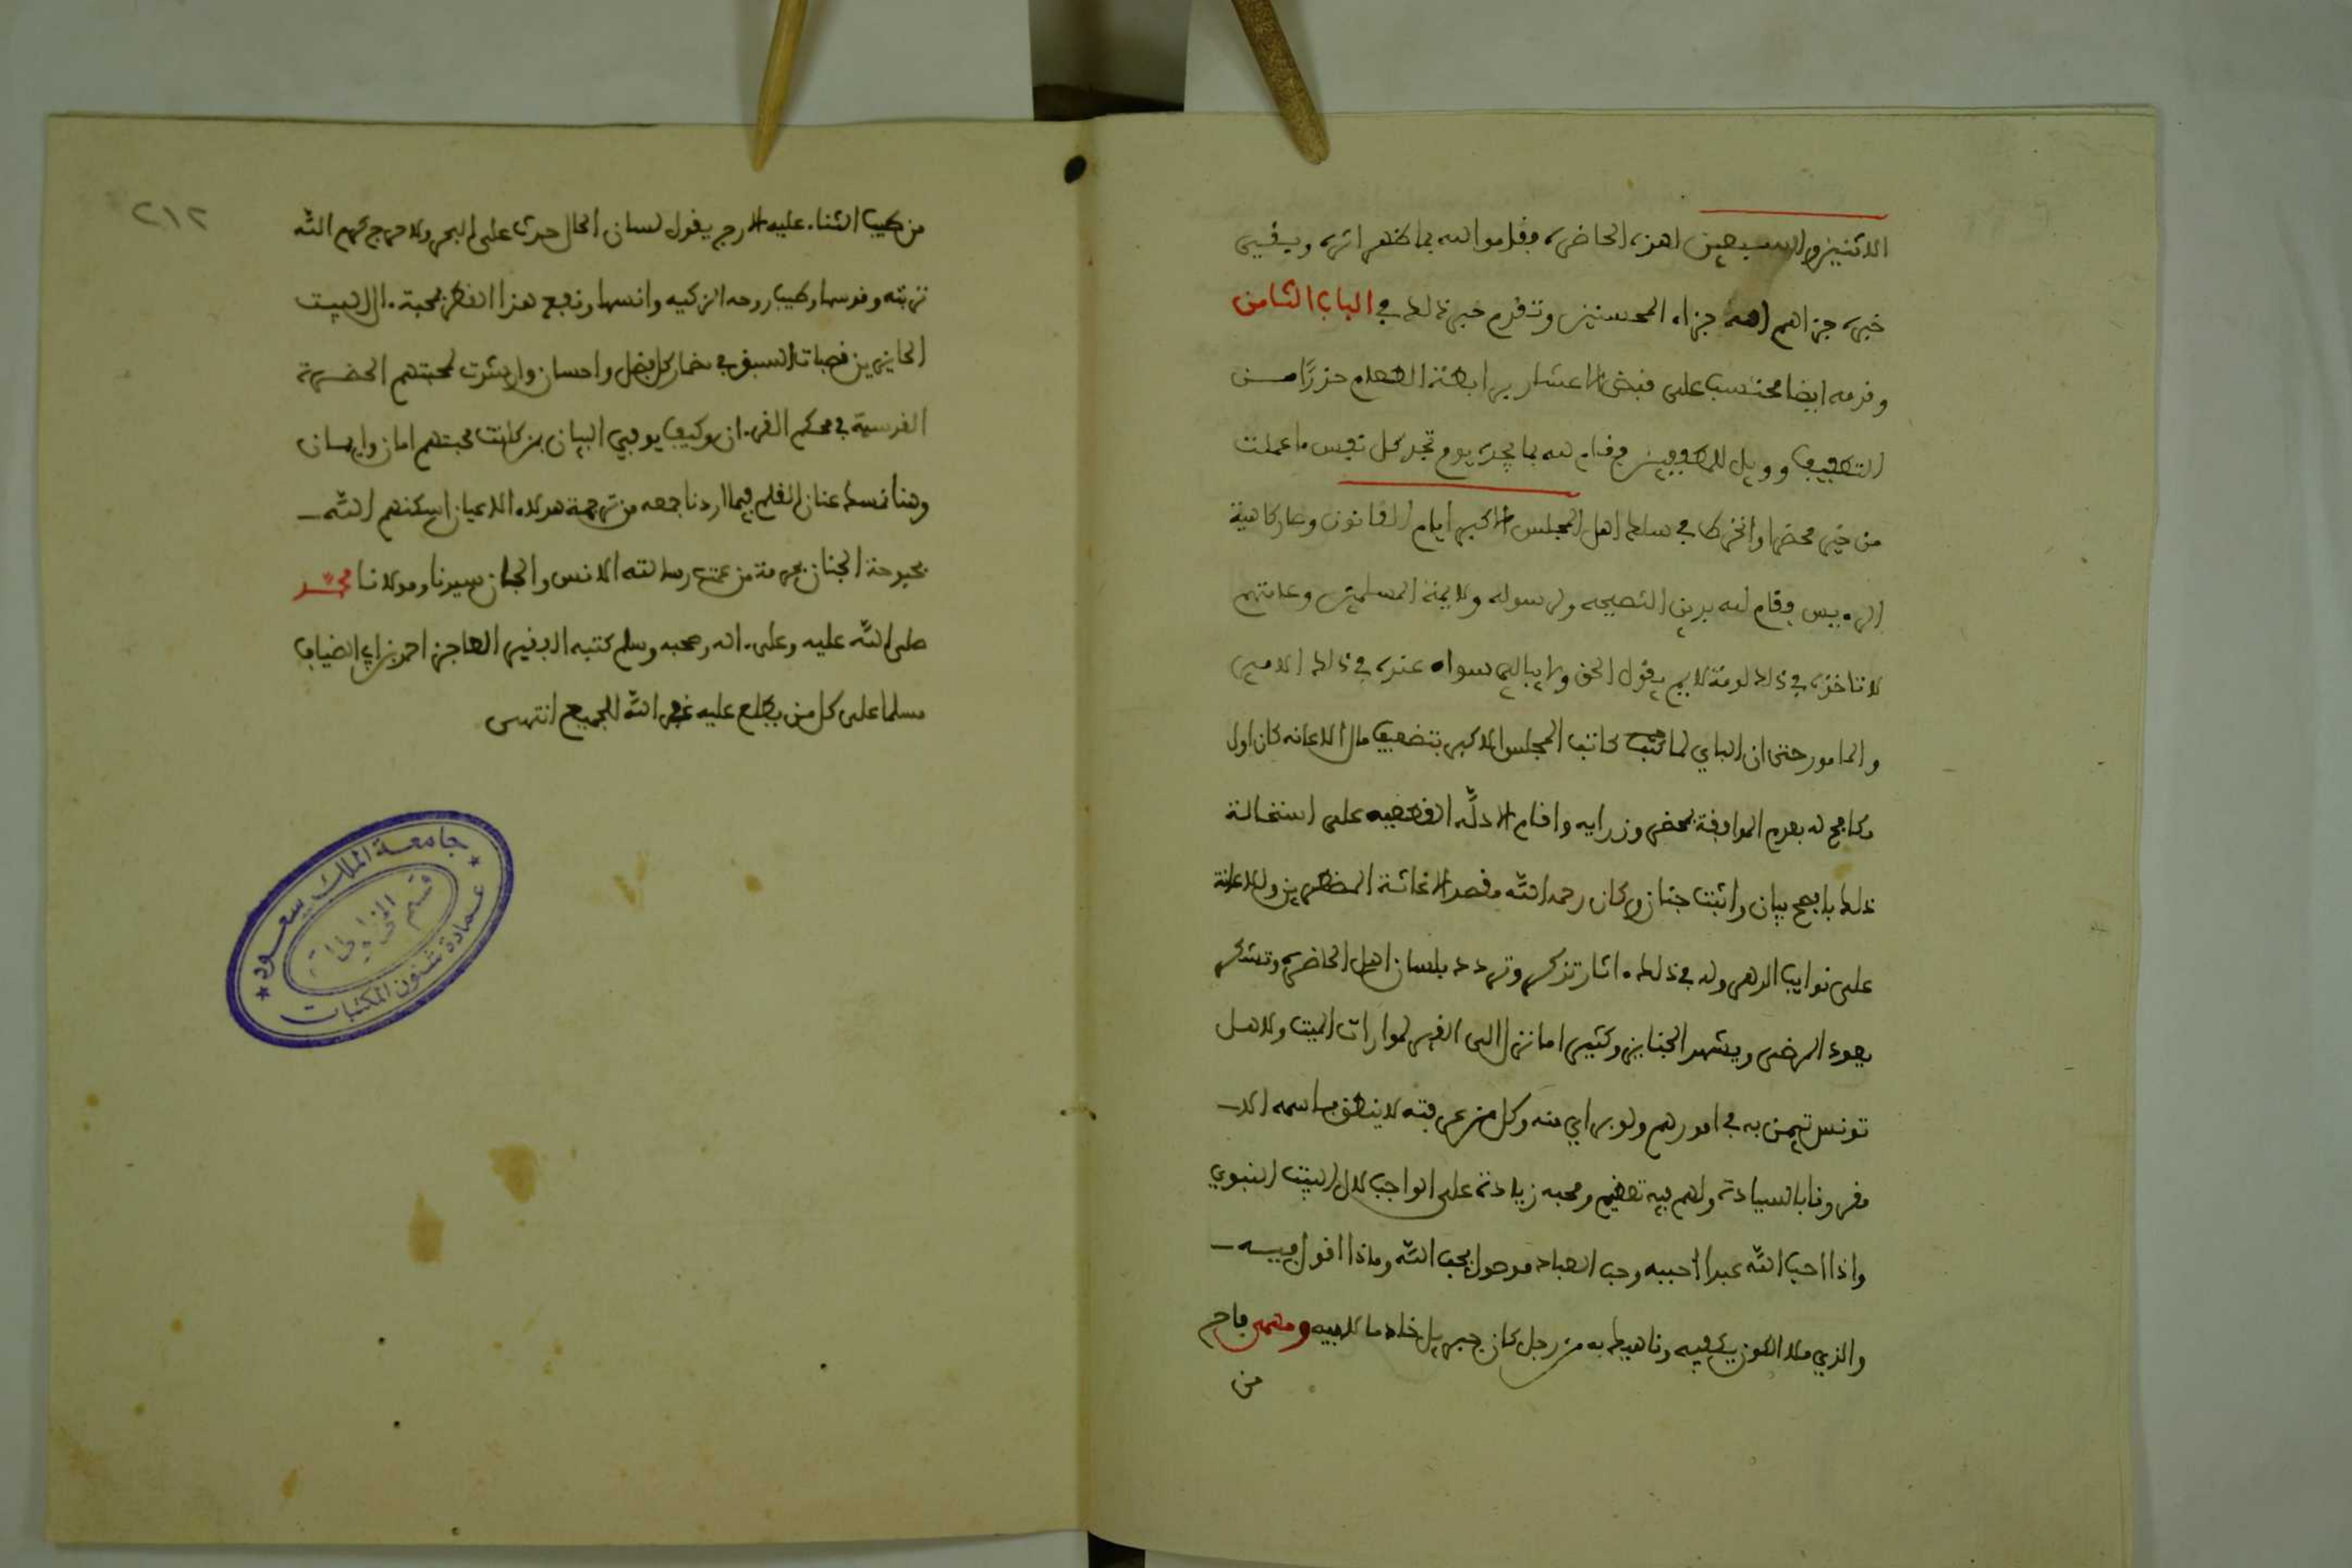 الاثنين والسبعين اهنه الحاضرة وقاموا لله بما ظهر اثره وبقي
خيره جزاهم الله جزاء المحسنين وتقدم خبر ذلك في الباب الثامن
وقدمه ايضا محتسبا على قبض الاعشار برابطة الطعام حذرًا مـن
التطفيف وويل للمطففين وقام لله بما يجده يوم تجد كل نفس ما عملت
من خير محضرا وانخرط في سلك اهل المجلس الاكبر ايام القانون وصار كاهية
الرءيس وقام لله بدين النصيحه ولرسوله ولايمة المسلمين وعامتهم
لا تاخذه في ذلك لومة لايم يقول الحق ولا يبالي سواء عنده في ذلك الامير
والمامور حتى ان الباي لما كتب كاتب المجلس الاكبر بتضعيف مال الاعانه كان اول
مكافح له بعدم الموافقة بمحضر وزرايه واقام الادلّه القطعيه على استحالة
ذلك بافصح بيان واثبت جنان وكان رحمه الله مقصدا لاغاثة المضطرين والاعانة
على نوايب الدهر وله في ذلك ءاثار تذكر وتردد بلسان اهل الحاضرة وتشكر
يعود المرضى ويشهد الجنايز وكثيرا ما نزل الى القبر لموارات الميت ولاهـل
تونس تيمن به في امورهم ولو براي منه وكل من عرفته لا ينطق باسمه الا
مقرونا بالسيادة ولهم فيه تعظيم ومحبه زيادة على الواجب لال البيت النبوي
واذا احب الله عبدا احببه وحب العباد موصول بحب الله وماذا اقول فيـه
والذي ملا الكون يكفيه وناهيك به من رجل كان جبريل خادما لابيه ومهمى فاح
من
٢١٢
من طيب الثناء عليه الارج يقول لسان الحال حدث على البحر ولا حرج رحم الله
تربته وقدسها وطيب روحه الزكيه وانسها ونفع هذا القطر بمحبة ءال البيت
الحايزين قصبات السبق في مضمار كل فضل واحسان وارشدت لمحبتهم الحضرة
القدسية في محكم القرءان وكيف يوفي البيان بمن كانت محبتهم امان وايمان
وهنا نمسك عنان القلم فيما اردنا جمعه من ترجمة هولاء الاعيان اسكنهم الله
بحبوحة الجنان بحرمة من عمت رسالته الانس والجان سيدنا ومولانا محمد
صلى الله عليه وعلى ءاله وصحبه وسلم كتبه الفقير العاجز احمد بن ابي الضياف
مسلما على كل من يطلع عليه غفر الله للجميع انتهى
جامعة الملك سعود
قسم المخطوطات
عمادة شئون المكتبات